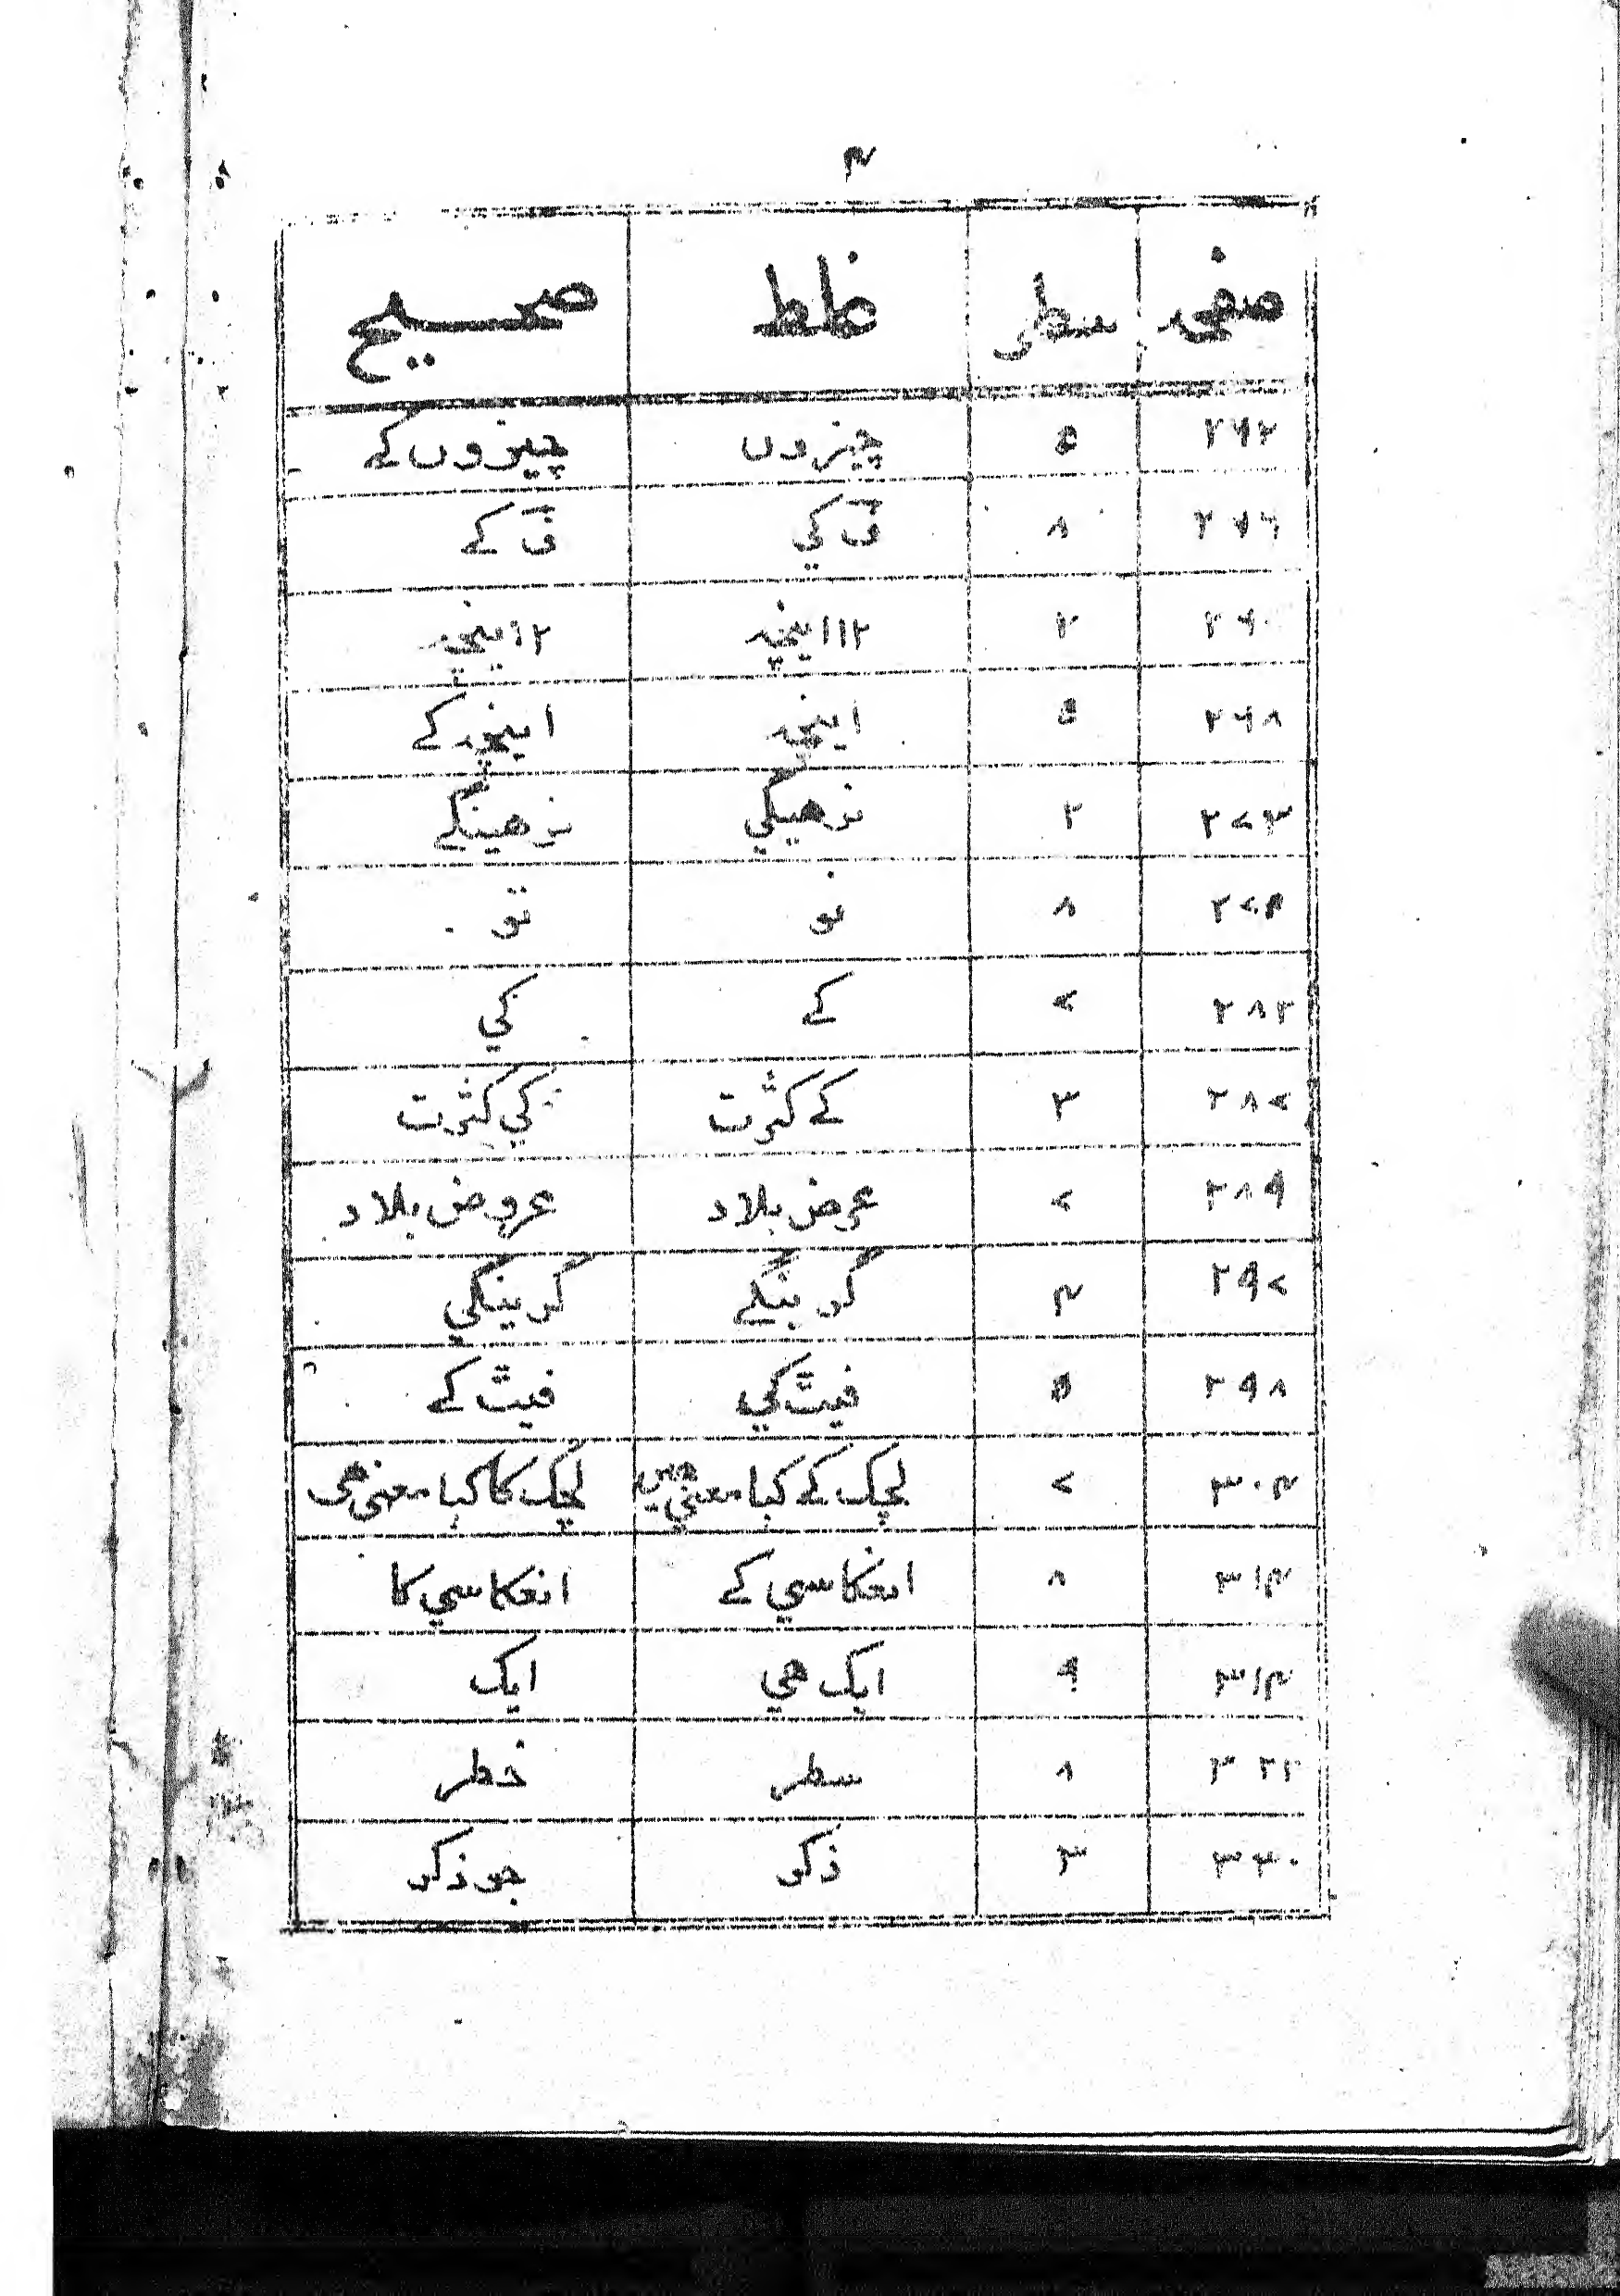 ۴
صفحہ سطر غلط صحیح
۲۶۲ ۵ چیزوں چیزوں کے
۲۶۶ ۸ قٓ کي قٓ کے
۲۶۰ ۲ ۱۱۲ینچہ ۱۲ینچہ
۲۶۸ ۵ اینچہ اینچہ کے
۲۷۳ ۲ نرهیگي نرهینگے
۲۷۴ ۸ نو تو
۲۸۲ ۷ کے کي
۲۸۷ ۳ کے کثرت کي کثرت
۲۸۹ ۷ عرض بلاد عروض بلاد
۲۹۷ ۴ کرینگے کرینگي
۲۹۸ ۵ فیٹ کي فیٹ کے
۳۰۴ ۷ لچک کے کیا معني هیں لچک کا کیا معنی هی
۳۱۴ ۸ انعکاسي کے انعکاسي کا
۳۱۴ ۹ ایک هي ایک
۳۲۲ ۸ سطر خطر
۳۳۰ ۳ ذکر جو ذکر